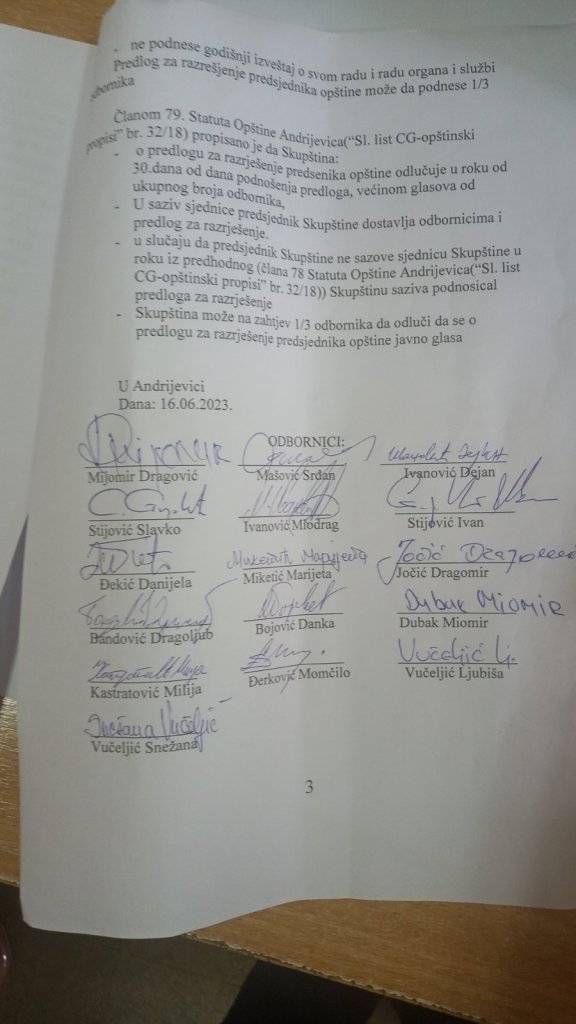 - ne podnese godišnji izveštaj o svom radu i radu organa i službi
Predlog za razrešjenje predsjednika opštine može da podnese 1/3
odbornika
Članom 79. Statuta Opštine Andrijevica(“Sl. list CG-opštinski
propisi” br. 32/18) propisano je da Skupština:
- o predlogu za razrješenje predsenika opštine odlučuje u roku od
30.dana od dana podnošenja predloga, većinom glasova od
ukupnog broja odbornika,
- U saziv sjednice predsjednik Skupštine dostavlja odbornicima i
predlog za razrješenje.
- u slučaju da predsjednik Skupštine ne sazove sjednicu Skupštine u
roku iz predhodnog (člana 78 Statuta Opštine Andrijevica(“Sl. list
CG-opštinski propisi” br. 32/18)) Skupštinu saziva podnosical
predloga za razrješenje
- Skupština može na zahtjev 1/3 odbornika da odluči da se o
predlogu za razrješenje predsjednika opštine javno glasa
U Andrijevici
Dana: 16.06.2023.
ODBORNICI:
Mijomir Dragović Mašović Srđan Ivanović Dejan
Stijović Slavko Ivanović Miodrag Stijović Ivan
Микетић Маријета Jočić Dragomir
Đekić Danijela Miketić Marijeta Jočić Dragomir
Dubak Miomir
Bandović Dragoljub Bojović Danka Dubak Miomir
Vučeljić Lj.
Kastratović Milija Đerković Momčilo Vučeljić Ljubiša
Snežana Vučeljić
Vučeljić Snežana
3